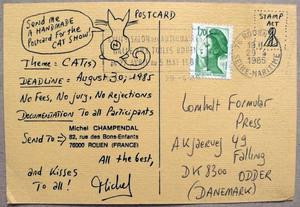 SEND ME
A HANDMADE
Postcard for the
CAT SHOW!
POSTCARD
STAMP
ACT
Theme: CAT(S)
DEADLINE = August 30, 1985
No Fees, No jury, No Rejections
DOCUMENTATION To all Participants
Send To →
Michel CHAMPENDAL
82, rue des Bons-Enfants
76000 ROUEN (FRANCE)
All the best,
and Kisses
To all!
Michel
1,70
ROUEN
1985
SEINE-MARITIME
Lomholt Formular
Press
Akjaervej 49
Falling
DK 8300 ODDER
(DANEMARK)